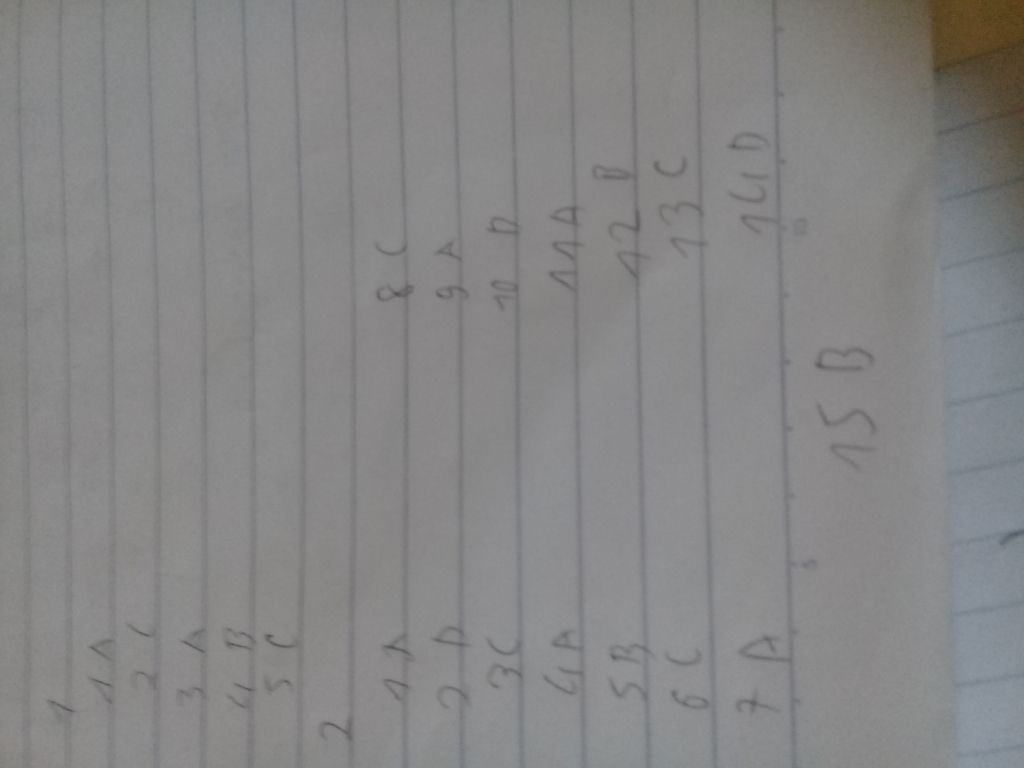 1
1 A
2 C
3 A
4 B
5 C
2
1 A
2 D
3 C
4 A
5 B
6 C
7 A
8 C
9 A
10 D
11 A
12 B
13 C
14 D
15 B